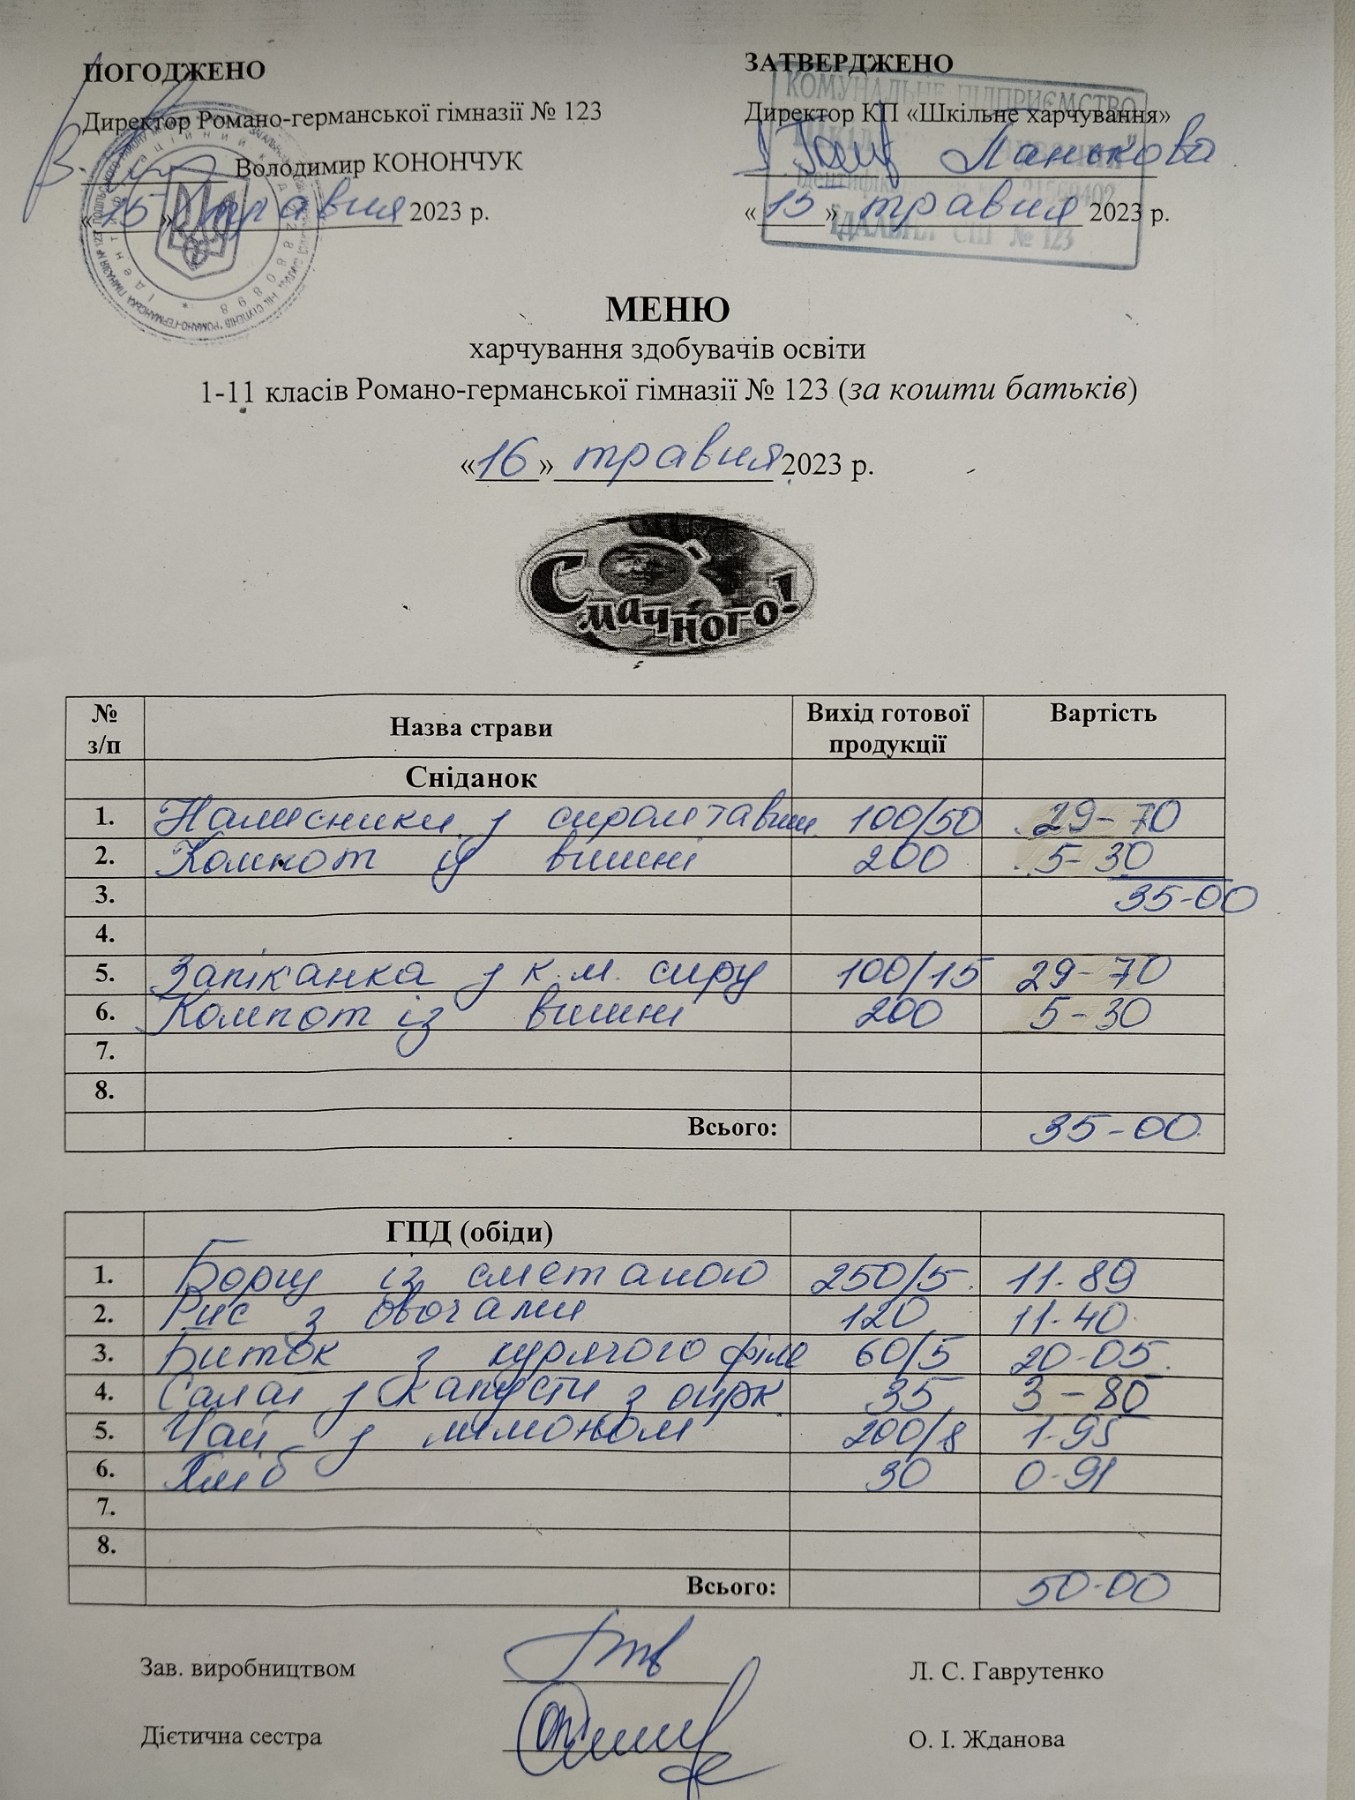 ПОГОДЖЕНО
Директор Романо-германської гімназії № 123
Володимир КОНОНЧУК
«15» травня 2023 р.
ЗАТВЕРДЖЕНО
Директор КП «Шкільне харчування»
Панькова
«15» травня 2023 р.
КОМУНАЛЬНЕ ПІДПРИЄМСТВО
ЇДАЛЬНЯ СШ № 123
МЕНЮ
харчування здобувачів освіти
1-11 класів Романо-германської гімназії № 123 (за кошти батьків)
«16» травня 2023 р.
Смачного!
№ з/п Назва страви Вихід готової продукції Вартість
Сніданок
1. Налисники з сиром 100/50 29-70
2. Компот із вишні 200 5-30
3. 35-00
4.
5. Запіканка з к.м. сиру 100/15 29-70
6. Компот із вишні 200 5-30
7.
8.
Всього: 35-00
ГПД (обіди)
1. Борщ із сметаною 250/5 11-89
2. Рис з овочами 120 11-40
3. Биток з курячого філе 60/5 20-05
4. Салат з капусти з огірк 35 3-80
5. Чай з лимоном 200/8 1-95
6. Хліб 30 0-91
7.
8.
Всього: 50-00
Зав. виробництвом Л. С. Гаврутенко
Дієтична сестра О. І. Жданова